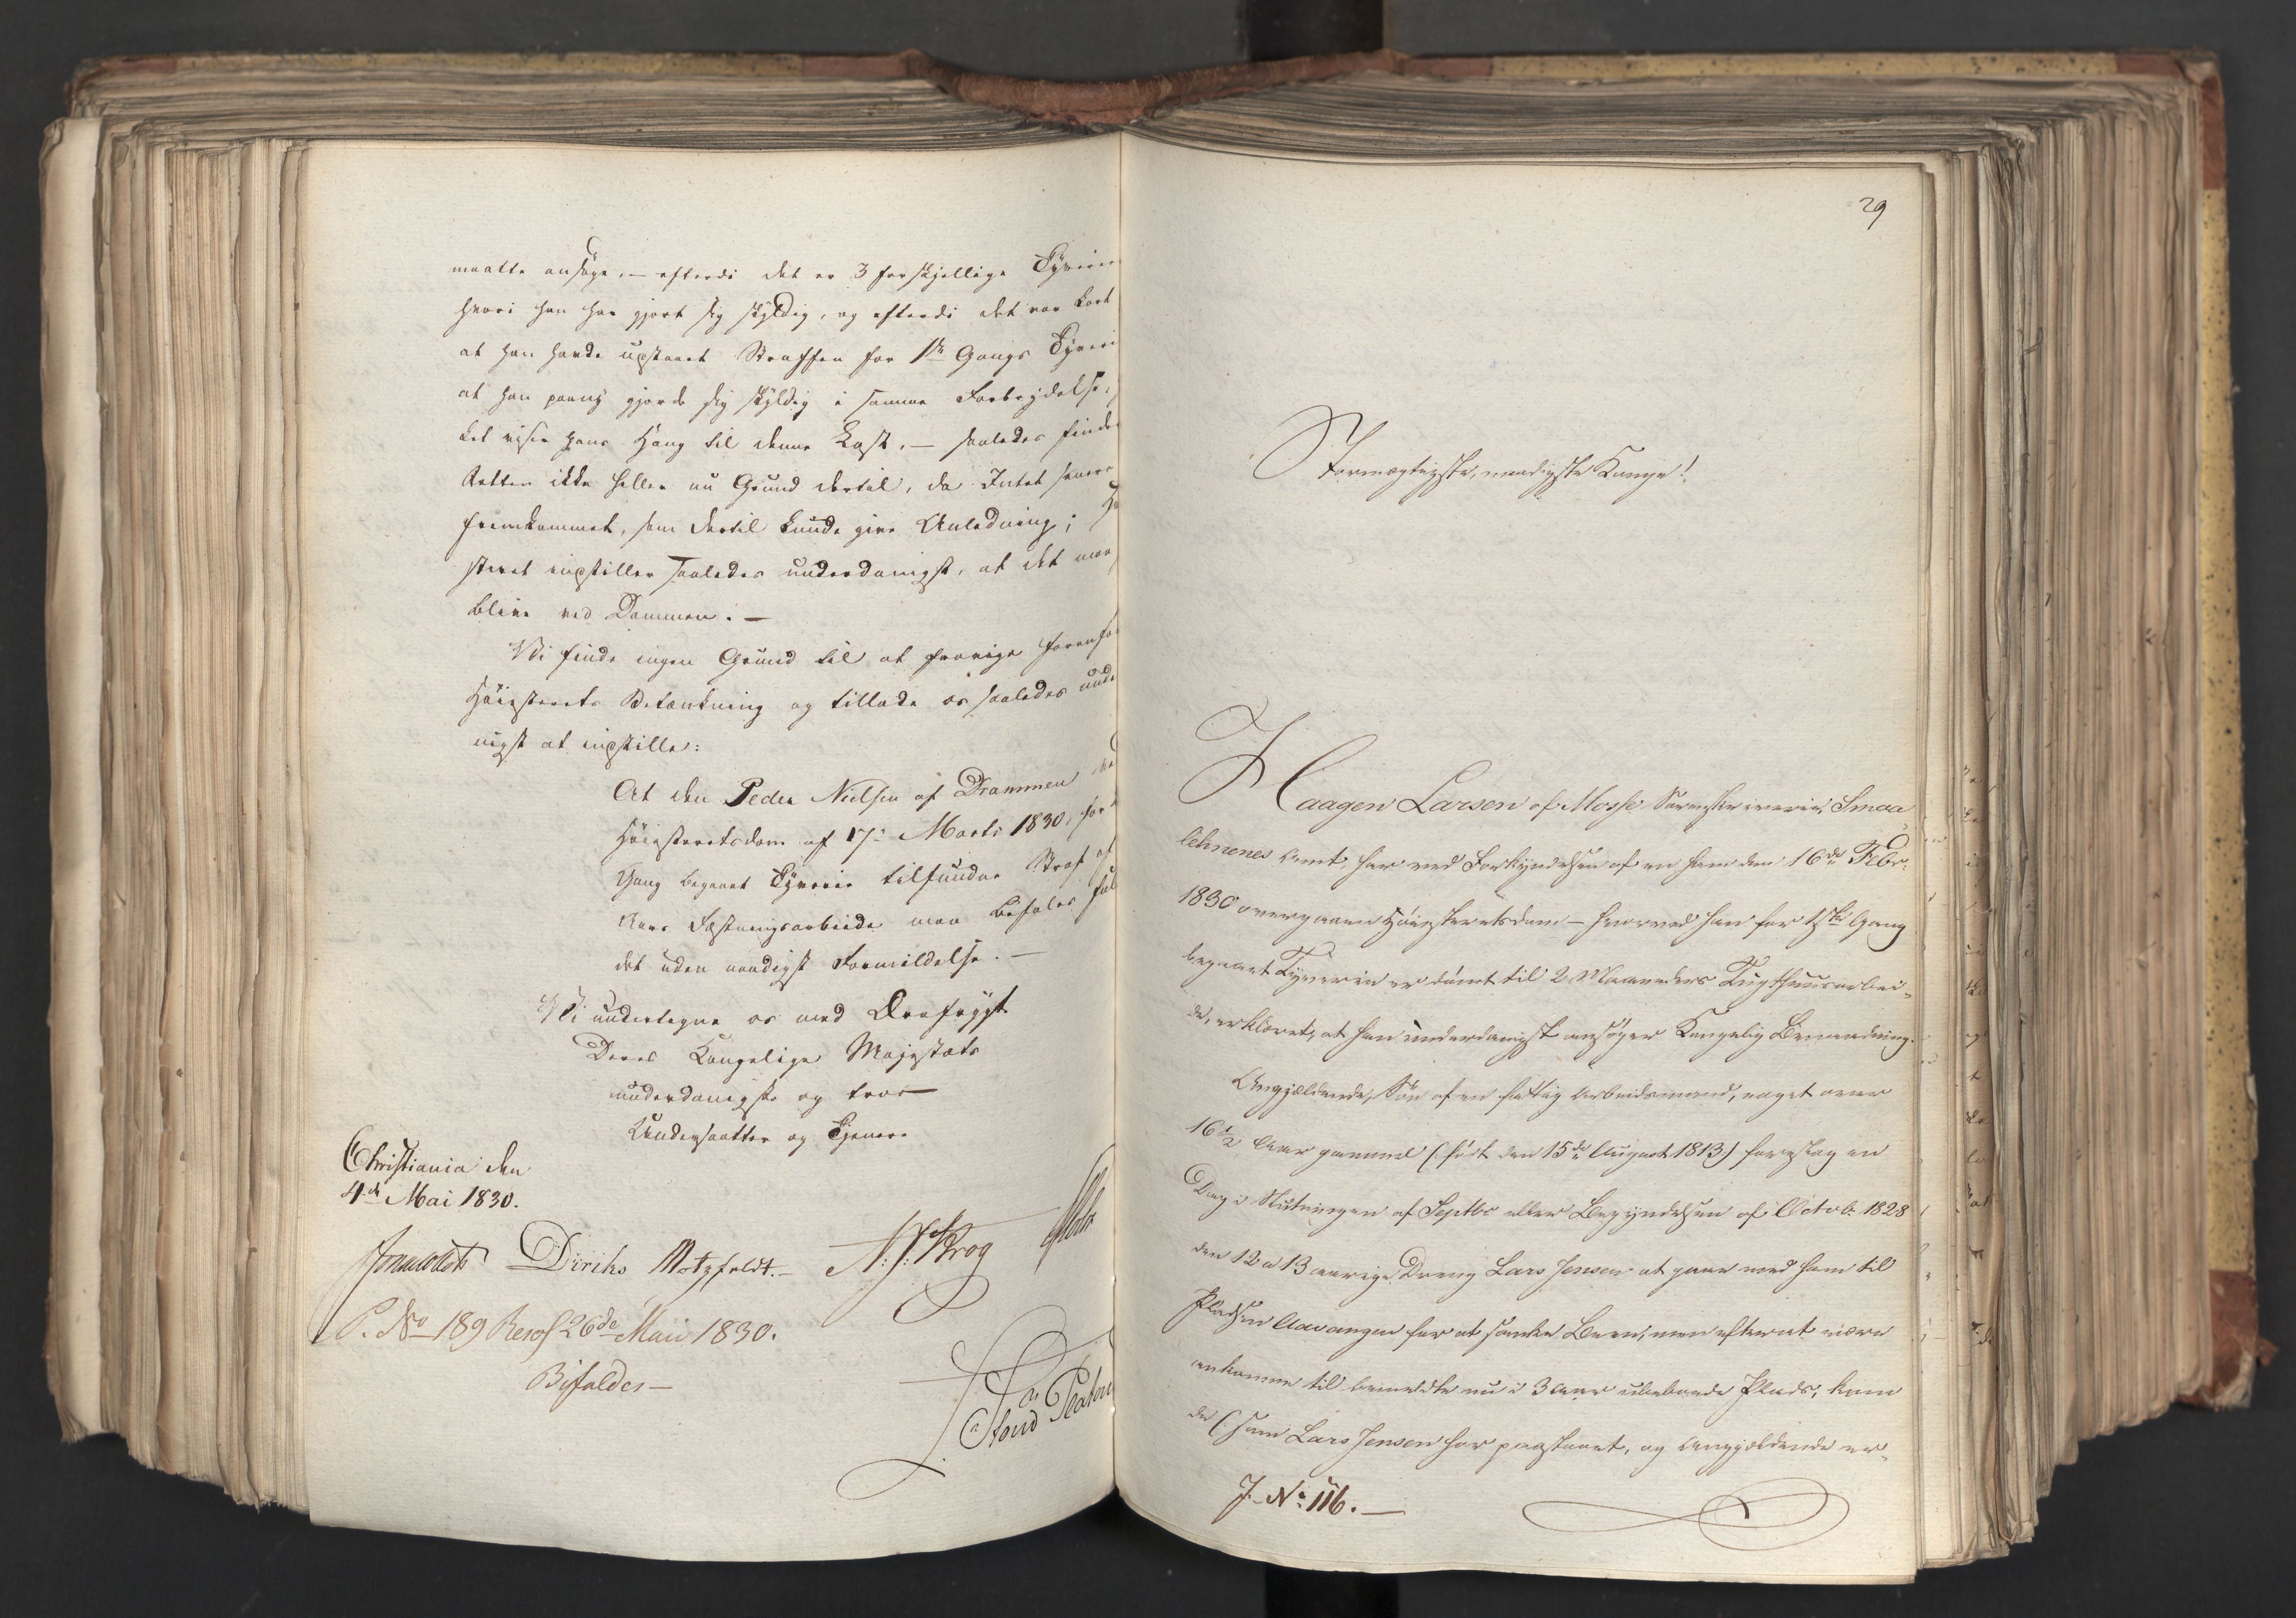 maatte ansøge, – efterdi det er 3 forskjellige Tyverier
hvori han har gjort sig skyldig, og efterdi det var kort
at han havde udstaaet Straffen for 1ste Gangs Tyveri
at han paany gjorde sig skyldig i samme Forbrydelse,
ket viser hans Hang til denne Last. – saaledes finder
Retten ikke heller nu Grund dertil, da Intet senere
fremkommet, som dertil kunde give Anledning; Hø
steret indstiller saaledes underdanigst, at det maa
blive ved Dommen. –
Vi finde ingen Grund til at fravige
Høiesterets Betænkning og tillade os saaledes unde
nigst at indstille:
At den Peder Nielsen af Drammen ved
Høiesteretsdom af 17de Marts 1830, for
Gang begaaet Tyverie tilfundne Straf af
Aars Fæstningsarbeide maa befales ful
det uden naadigst Formildelse. –
Vi undertegne os med Ærefrygt
Deres Kongelige Majestæts
underdanigste og troe
Undersaatter og Tjenere
Christiania den
4de Mai 1830.
Diriks Motzfeldt. – Krog
P. No 189 Resol 26de Maii 1830.
Bifaldes –
29
Stormægtigste, naadigste Konge!
Haagen Larsen af Mosse Sorenskriverie, Smaa
lehnenes Amt, har ved Forkyndelsen af en ham den 16de Febr:
1830 overgaaen Høiesteretsdom – hvorved han for 1ste Gang
begaaet Tyverie er dømt til 2 Maaneders Tugthuusarbei-
de, erklæret, at han underdanigst ansøger Kongelig Benaadning.
Angjældende, Søn af en fattig Arbeidsmand, noget over
16½ Aar gammel (: født den 15de August 1813:) foreslog en
Dag i Slutningen af Septbr eller Begyndelsen af Octob: 1828
den 12 a 13 aarige Dreng Lars Jensen at gaae med ham til
Pladsen Aavangen for at sanke Bær, men efter at være
ankomne til bemeldte nu i 3 Aar ubeboede Plads, kom
de (: som Lars Jensen har paastaaet, og Angjældende er-
J. No: 116. –